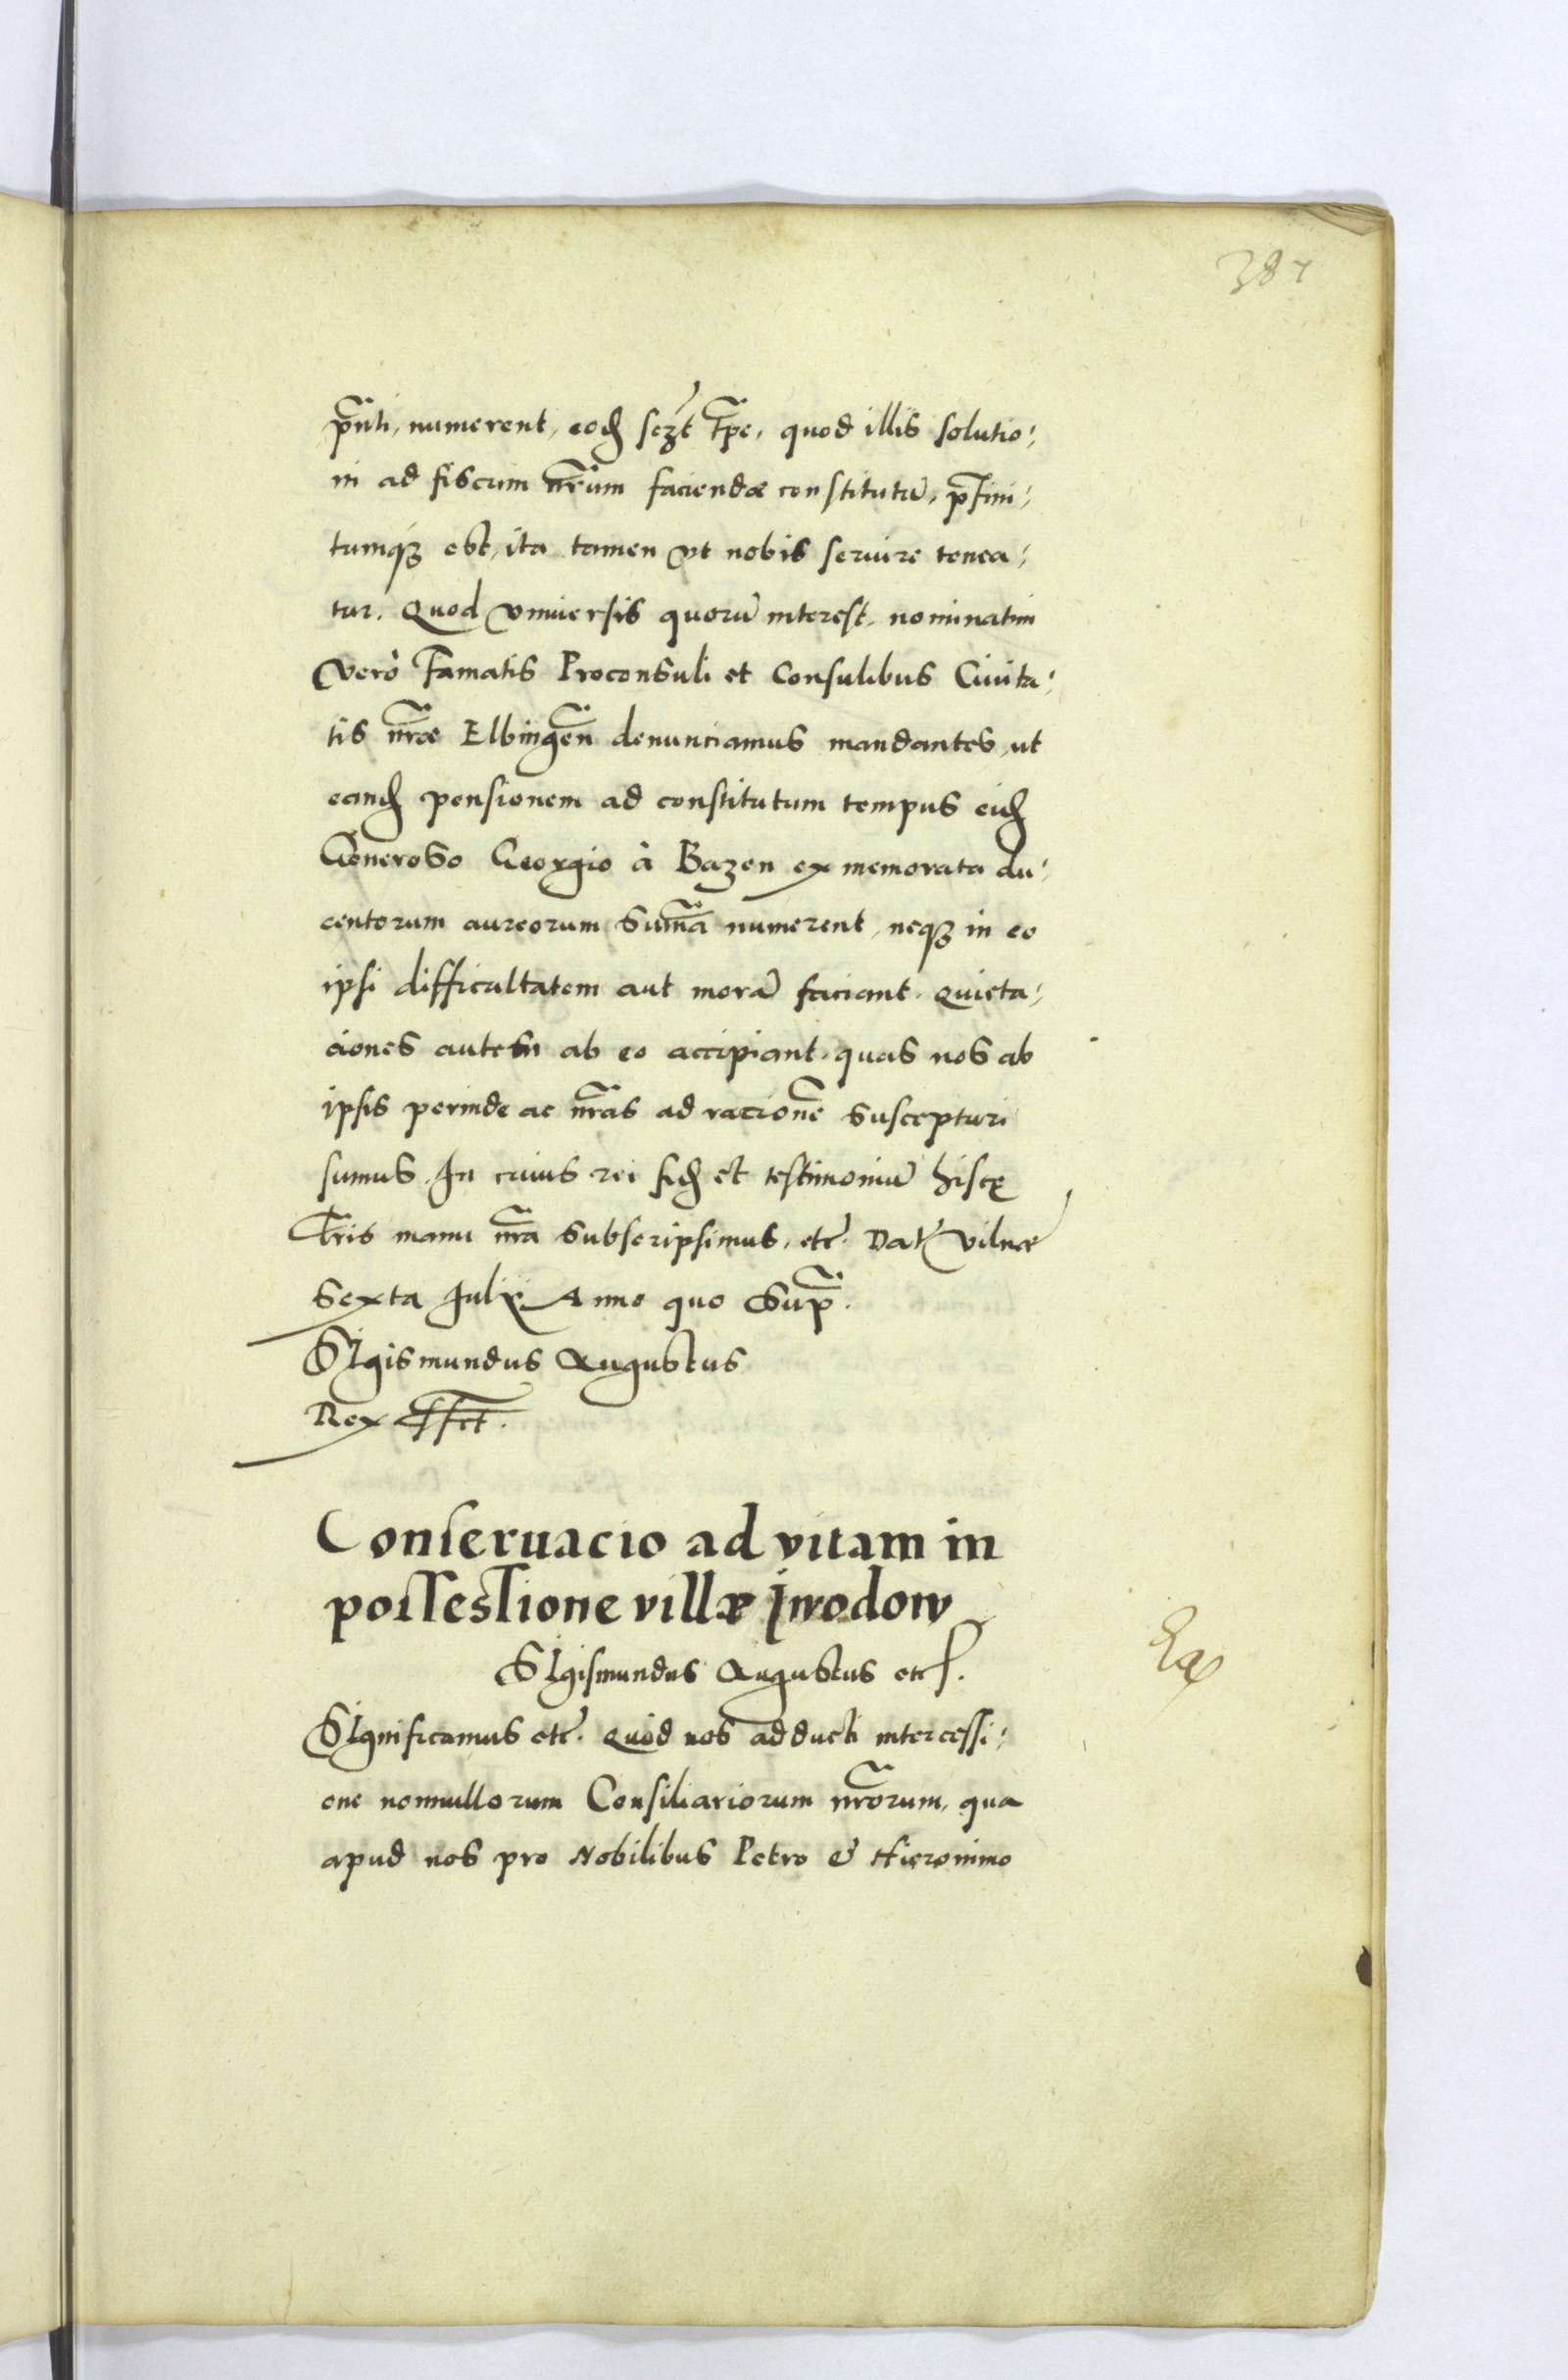 387
pn̄ti, numerent, eod. sezt tpe, quod illis solutio:
ni ad fiscum nr̄um faciendæ constitutū, p̄fini:
tumqȝ est, ita tamen vt nobis seruire tenea:
tur. Quod vniuersis quorū interest, nominatim
verò Famatis Proconsuli et Consulibus Ciuita:
tis nr̄æ Elbingen̄ denunciamus mandantes, ut
eand. pensionem ad constitutum tempus eid.
Generoso Georgio à Bazen ex memorata du:
centorum aureorum sum̄a numerent, neqȝ in eo
ipsi difficultatem aut morā faciant. Quieta:
ciones autem ab eo accipiant, quas nos ab
ipsis perinde ac nr̄as ad racionē suscepturi
sumus. In cuius rei fid. et testimoniū hisce
Lr̄is manu nr̄a subscripsimus, etc. Dat. Vilnæ
Sexta Julij Anno quo Sup̄.
Sigismundus Augustus
Rex sst.
Conseruacio ad vitam in
possessione villæ Jwodow
Sigismundus Augustus etc.
Significamus etc. Quòd nos adducti intercessi:
one nonnullorum Consiliariorum nr̄orum, qua
apud nos pro Nobilibus Petro & Hieronimo